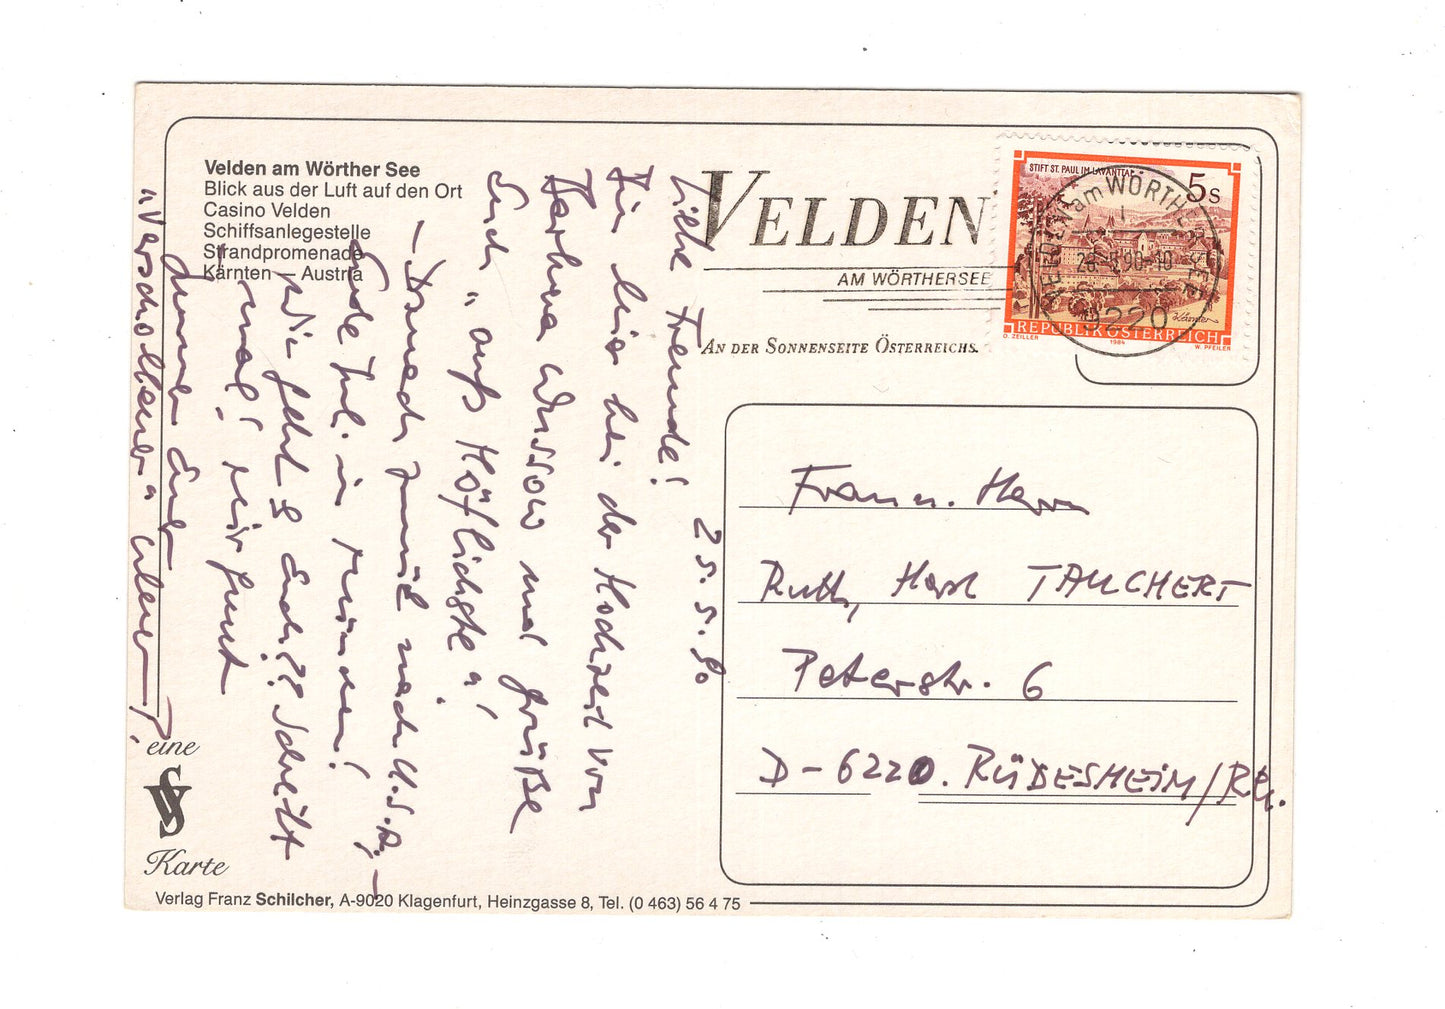 Velden am Wörther See
Blick aus der Luft auf den Ort
Casino Velden
Schiffsanlegestelle
Strandpromenade
Kärnten – Austria
VELDEN
AM WÖRTHERSEE
AN DER SONNENSEITE ÖSTERREICHS.
STIFT ST. PAUL IM LAVANTTAL
5 S
REPUBLIK ÖSTERREICH
O. ZEILLER 1984 W. PFEILER
VELDEN am WÖRTHER SEE
90-10
9220
25.5.90
Liebe Freunde!
Bin hier bei der Hochzeit von
Barbara Wussow und grüße
Euch „aufs Höflichste"!
– Danach zurück nach U.S.A.; –
Ende Jul. in München!
Wie geht's Euch?? Schreibt
mal! mir gut
Immer Euer
„Verschollener"
Frau u. Herrn
Ruth, Horst TAUCHERT
Peterstr. 6
D-6220. RÜDESHEIM/Rh.
eine
VS
Karte
Verlag Franz Schilcher, A-9020 Klagenfurt, Heinzgasse 8, Tel. (0 463) 56 4 75